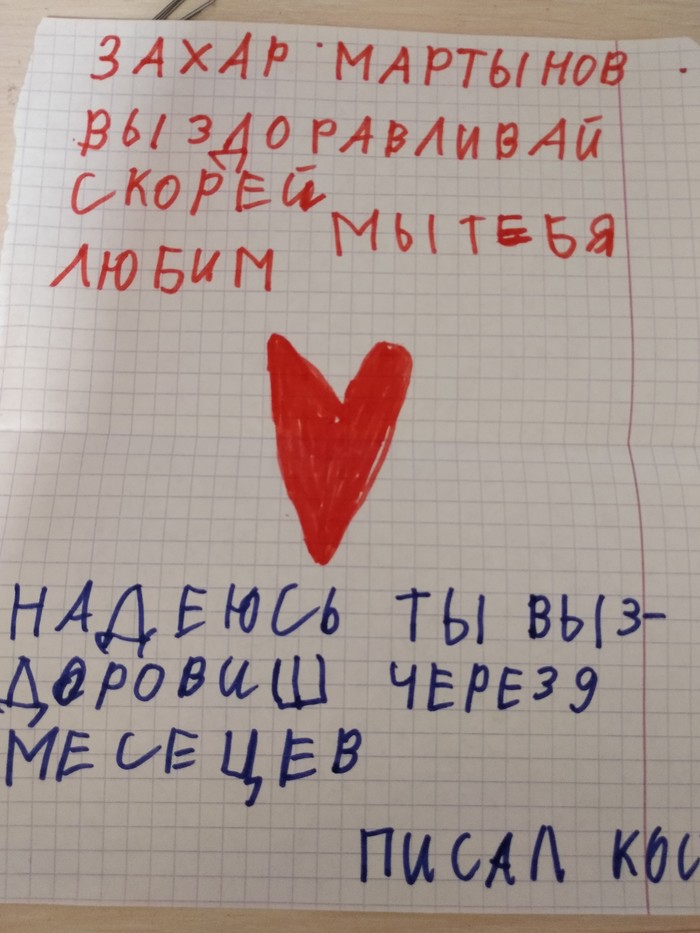 ЗАХАР МАРТЫНОВ
ВЫЗДОРАВЛИВАЙ
СКОРЕЙ
МЫ ТЕБЯ
ЛЮБИМ
НАДЕЮСЬ ТЫ ВЫЗ-
ДОРОВИШ ЧЕРЕЗ 9
МЕСЕЦЕВ
ПИСАЛ